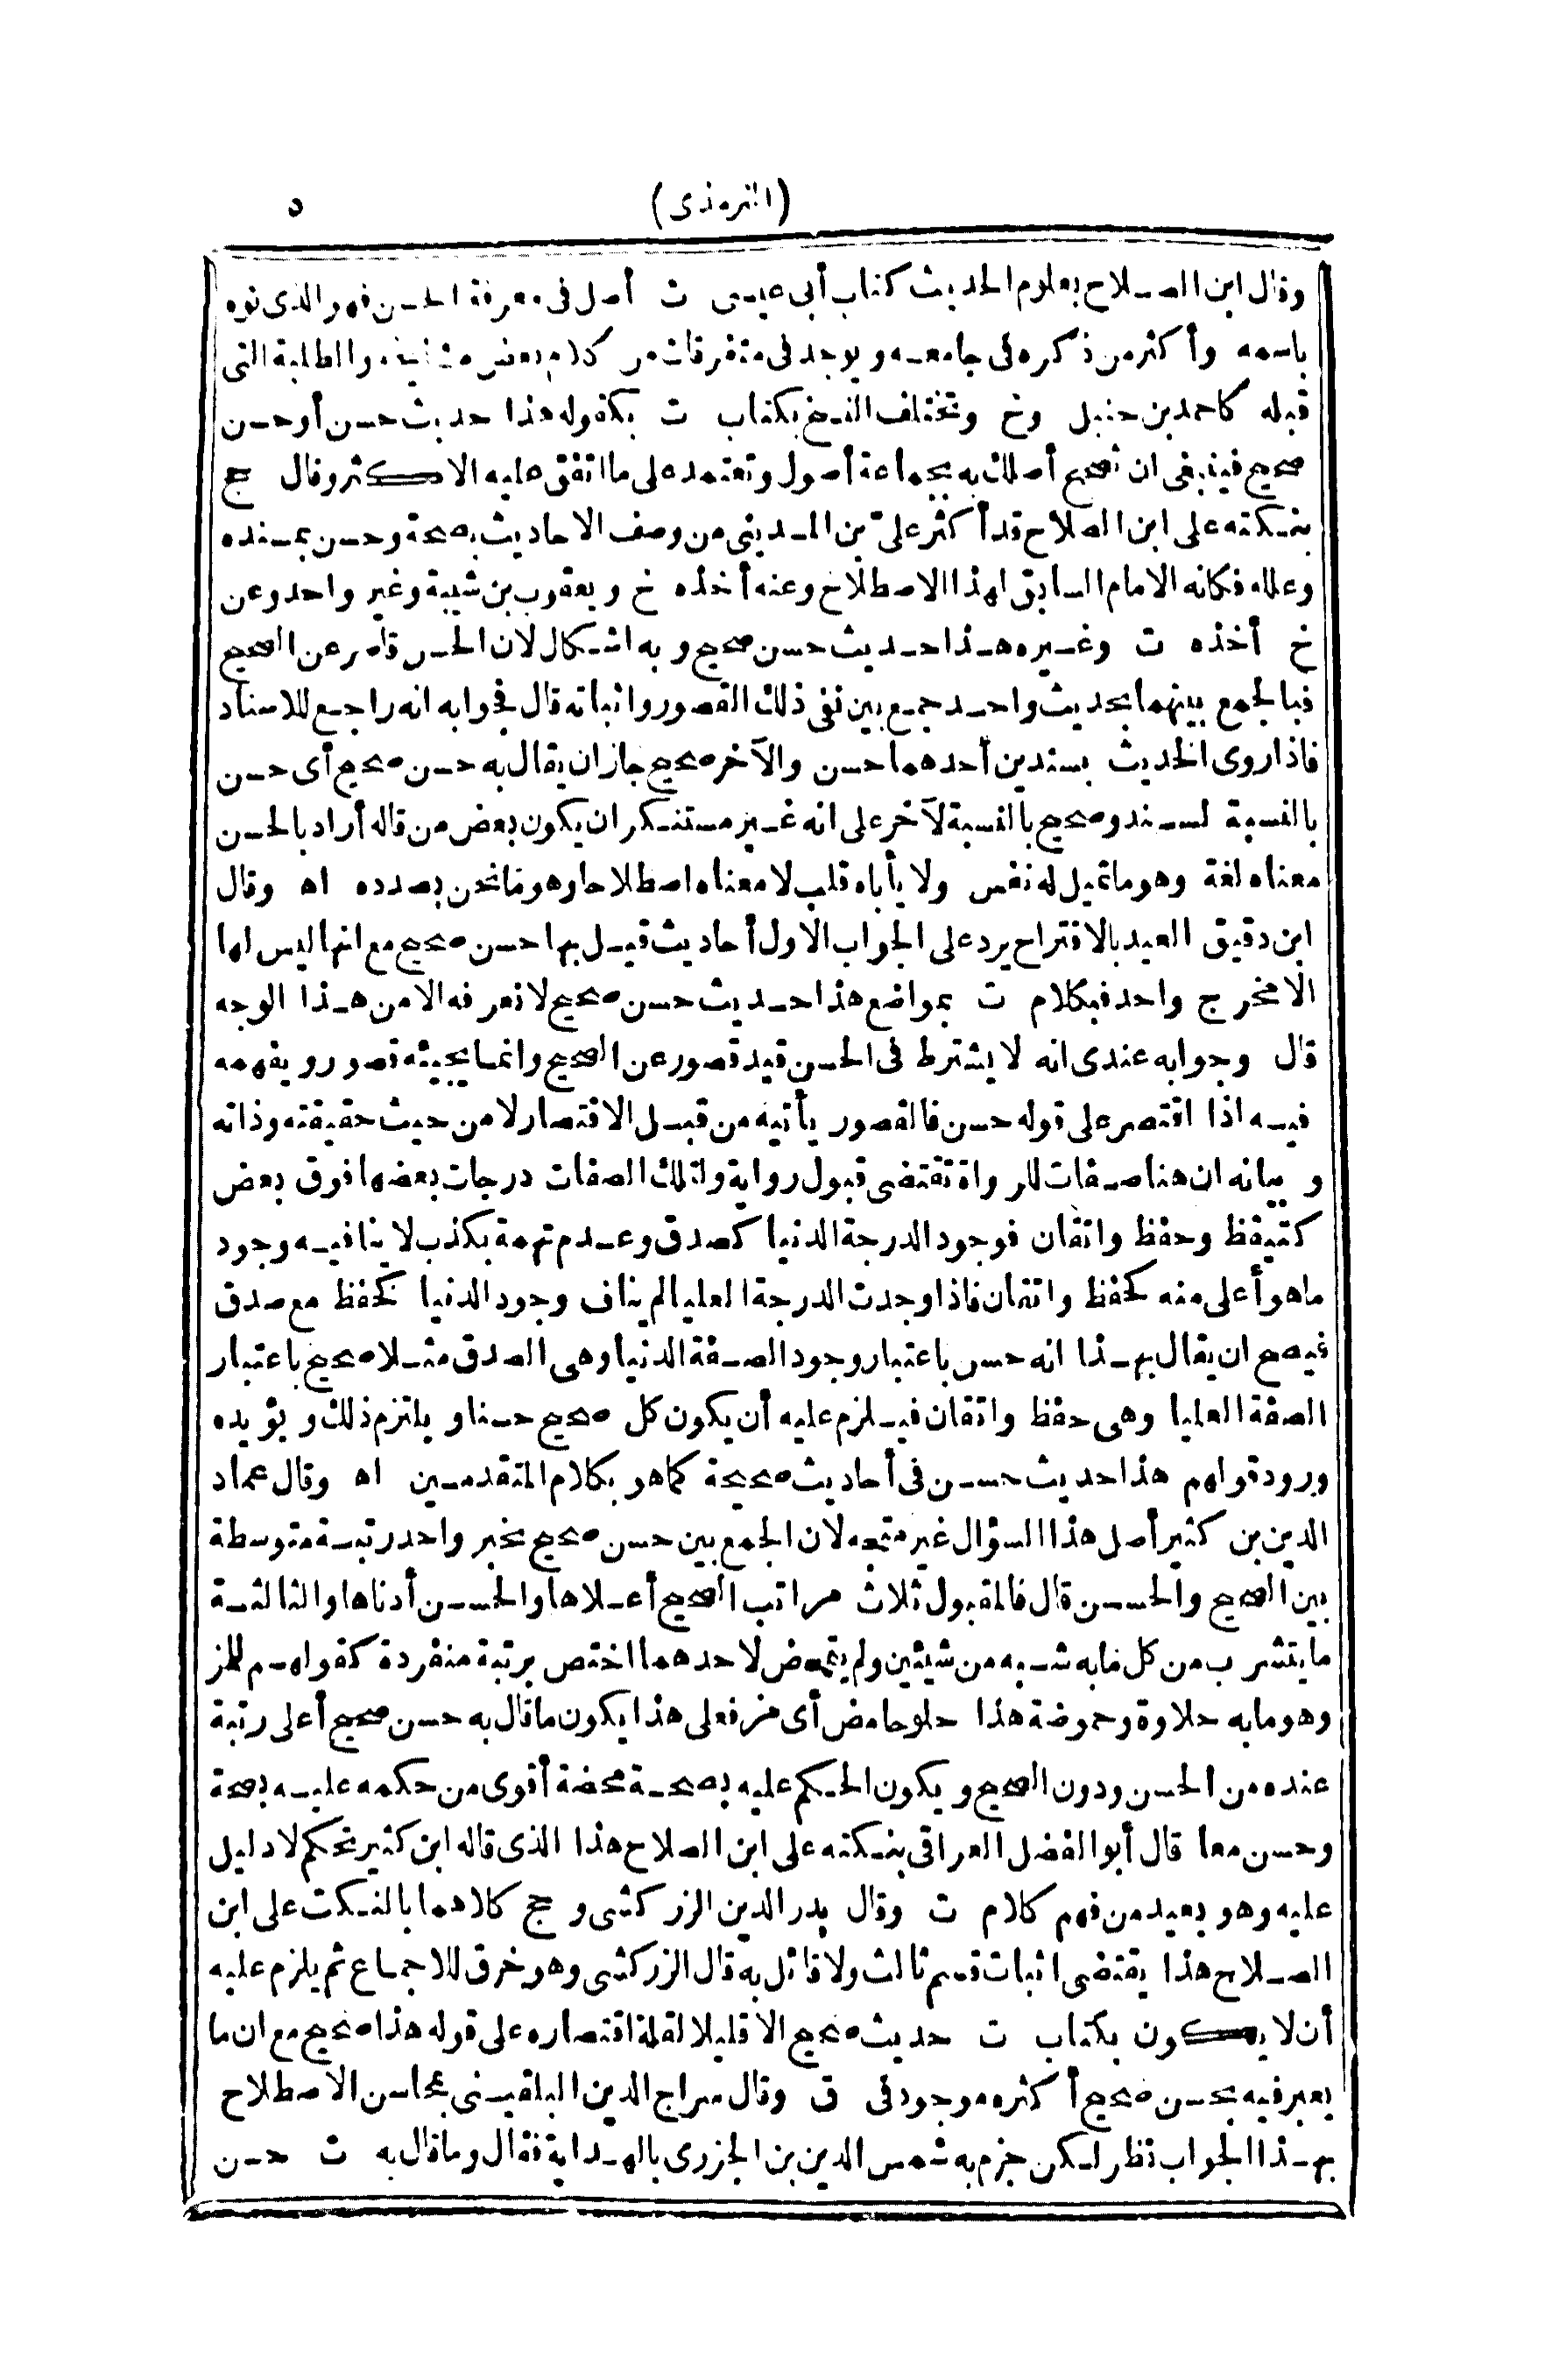 (الترمذى) ٥
وقال ابن الصلاح بعلوم الحديث كتاب أبى عيسى ت أصل فى معرفة الحسن فهو الذى نوه
باسمه وأكثر من ذكره فى جامعه ويوجد فى متفرقات من كلام بعض مشايخه والطلبة التى
قبله كاحمد بن حنبل وخ وتختلف النسخ بكتاب ت بكقوله هذا حديث حسن أو حسن
صحيح فينبغى ان تصحح أصلك به بجماعة أصول وتعتمد على ما اتفق عليه الاكثر وقال حج
بنكته على ابن الصلاح قد أكثر على بن المدينى من وصف الاحاديث بصحة وحسن بمسنده
وعلله فكانه الامام السابق لهذا الاصطلاح وعنه أخذه خ ويعقوب بن شيبة وغير واحد وعن
خ أخذه ت وغيره هذا حديث حسن صحيح وبه اشكال لان الحسن قاصر عن الصحيح
فبالجمع بينهما بحديث واحد جمع بين نفى ذلك القصور واثباته قال فجوابه انه راجع للاسناد
فاذا روى الحديث بسندين أحدهما حسن والآخر صحيح جاز ان يقال به حسن صحيح أى حسن
بالنسبة لسند وصحيح بالنسبة لآخر على انه غير مستنكر ان يكون بعض من قاله أراد بالحسن
معناه لغة وهو ما تميل له نفس ولا يأباه قلب لا معناه اصطلاحا وهو ما نحن بصدده اه وقال
ابن دقيق العيد بالاقتراح يرد على الجواب الاول أحاديث قيل بها حسن صحيح مع انها ليس لها
الا مخرج واحد فبكلام ت بمواضع هذا حديث حسن صحيح لا نعرفه الا من هذا الوجه
قال وجوابه عندى انه لا يشترط فى الحسن قيد قصور عن الصحيح وانما يجيئه قصور ويفهمه
فيه اذا اقتصر على قوله حسن فالقصور يأتيه من قبل الاقتصار لا من حيث حقيقته وذاته
وبيانه ان هنا صفات للرواة تقتضى قبول رواية ولتلك الصفات درجات بعضها فوق بعض
كتيقظ وحفظ واتقان فوجود الدرجة الدنيا كصدق وعدم تهمة بكذب لا ينافيه وجود
ما هو أعلى منه كحفظ واتقان فاذا وجدت الدرجة العليا لم يناف وجود الدنيا كحفظ مع صدق
فيصح ان يقال بهذا انه حسن باعتبار وجود الصفة الدنيا وهى الصدق مثلا صحيح باعتبار
الصفة العليا وهى حفظ واتقان فيلزم عليه أن يكون كل صحيح حسنا ويلتزم ذلك ويؤيده
ورود قولهم هذا حديث حسن فى أحاديث صحيحة كما هو بكلام المتقدمين اه وقال عماد
الدين بن كثير أصل هذا السؤال غير متجه لان الجمع بين حسن صحيح بخبر واحد رتبة متوسطة
بين الصحيح والحسن قال فالمقبول ثلاث مراتب الصحيح أعلاها والحسن أدناها والثالثة
ما يتشرب من كل ما به شبه من شيئين ولم يتمحض لاحدهما اختص برتبة منفردة كقولهم للمز
وهو ما به حلاوة وحموضة هذا حلو حامض أى مز فعلى هذا يكون ما قال به حسن صحيح أعلى رتبة
عنده من الحسن ودون الصحيح ويكون الحكم عليه بصحة محضة أقوى من حكمه عليه بصحة
وحسن معا قال أبو الفضل العراقى بنكته على ابن الصلاح هذا الذى قاله ابن كثير تحكم لا دليل
عليه وهو بعيد من فهم كلام ت وقال بدر الدين الزركشى و حج كلاهما بالنكت على ابن
الصلاح هذا يقتضى اثبات قسم ثالث ولا قائل به قال الزركشى وهو خرق للاجماع ثم يلزم عليه
أن لا يكون بكتاب ت حديث صحيح الا قليلا لقلة اقتصاره على قوله هذا صحيح مع ان ما
يعبر فيه بحسن صحيح أكثره موجود فى ق وقال سراج الدين البلقينى بمحاسن الاصطلاح
بهذا الجواب نظر لكن جزم به شمس الدين بن الجزرى بالهداية فقال وما قال به ت حسن